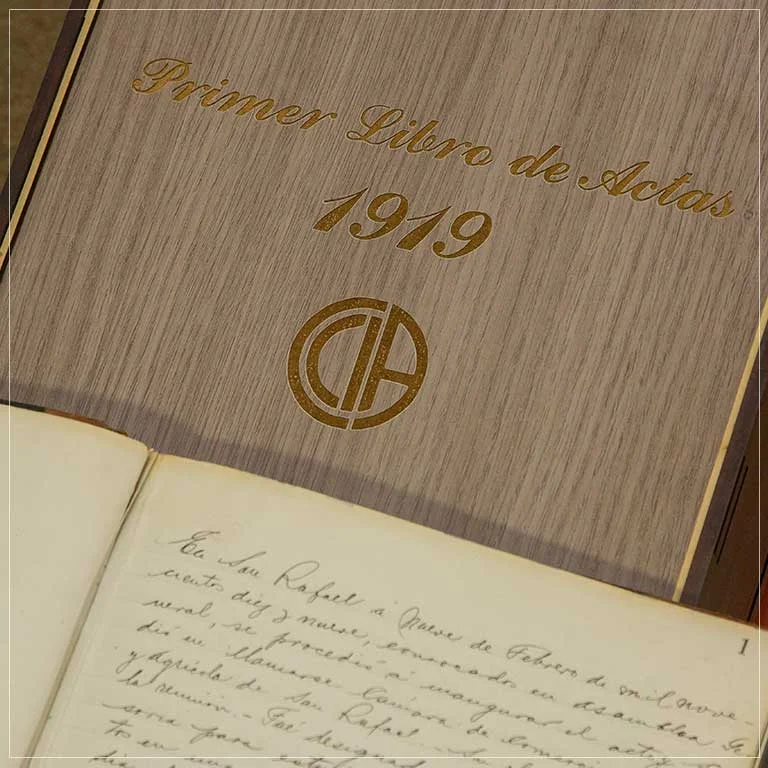 Primer Libro de Actas
1919
CCIA
1
En San Rafael a Nueve de Febrero de mil nove-
cientos diez y nueve, convocados en asamblea Ge-
neral, se procedió a inaugurar el acto,
dió en llamarse Cámara de Comercio
y Agrícola de San Rafael.-
la reunión.- Fué designad
soria para
tos en
dia